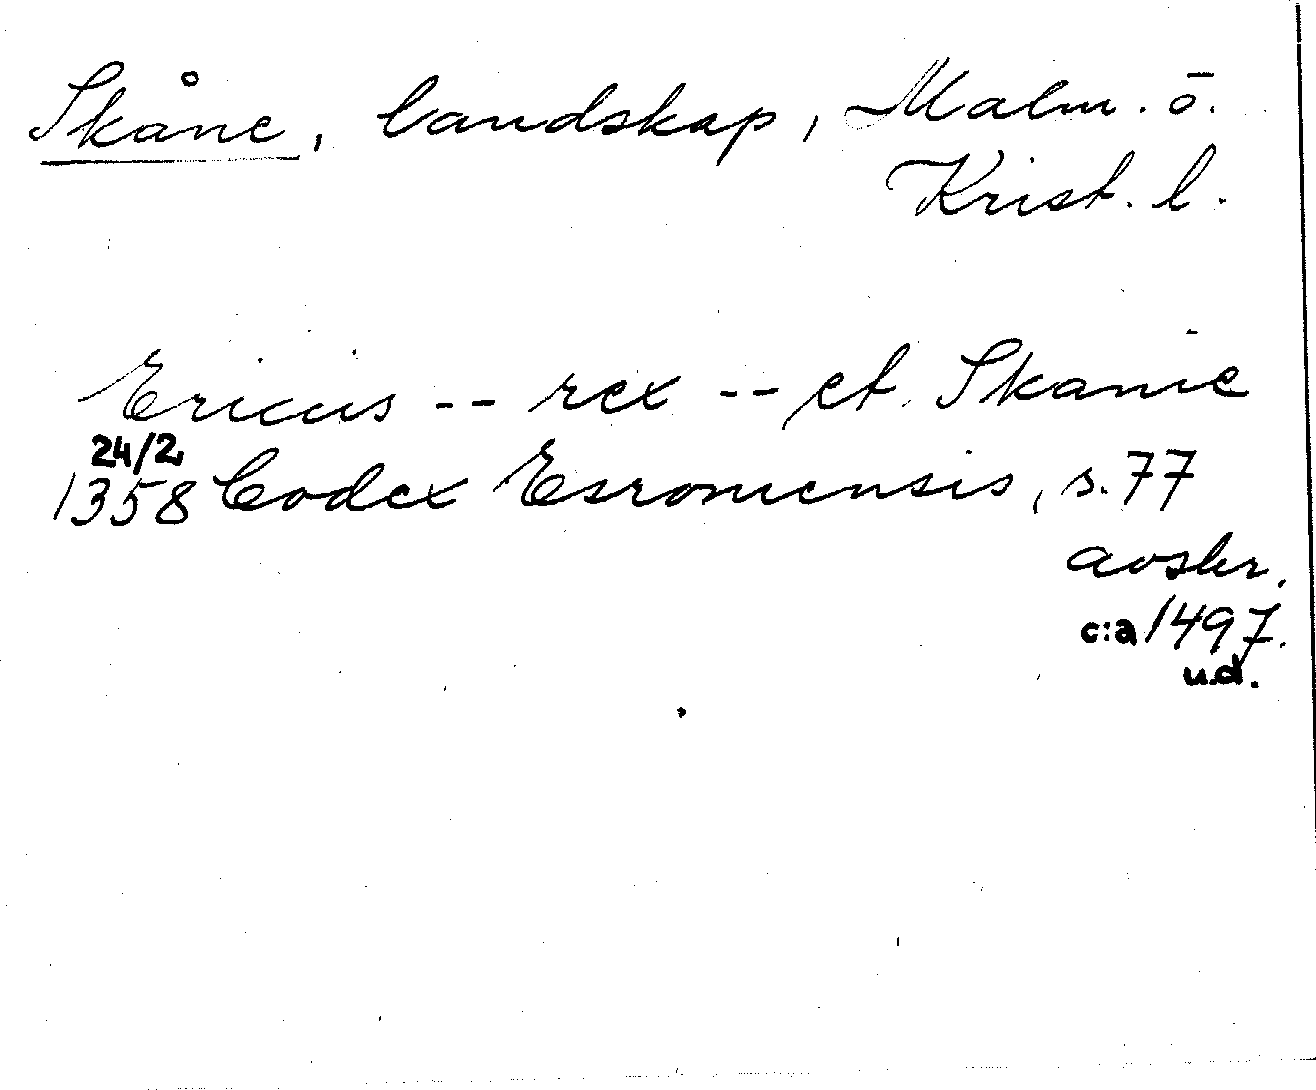 Skåne, landskap, Malm. ō.
Krist. l.
Ericus -- rex -- et Skanie
24/2
1358 Codex Esromensis, s. 77
avskr.
c:a 1497.
u.d.